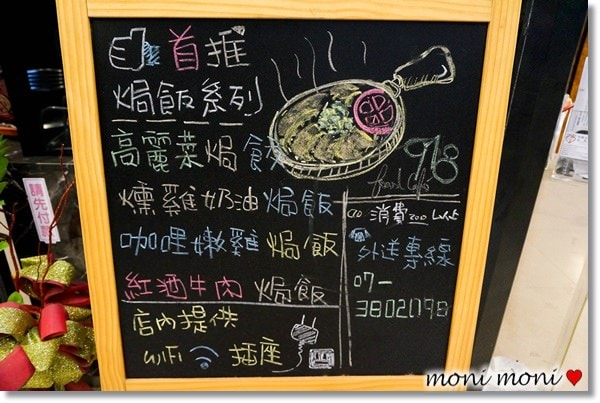 首推
焗飯系列
高麗菜焗飯
燻雞奶油焗飯
咖哩嫩雞焗飯
紅酒牛肉焗飯
店內提供
WIFI 插座
918
消費200
外送專線
07-
3802098
請先付
moni moni